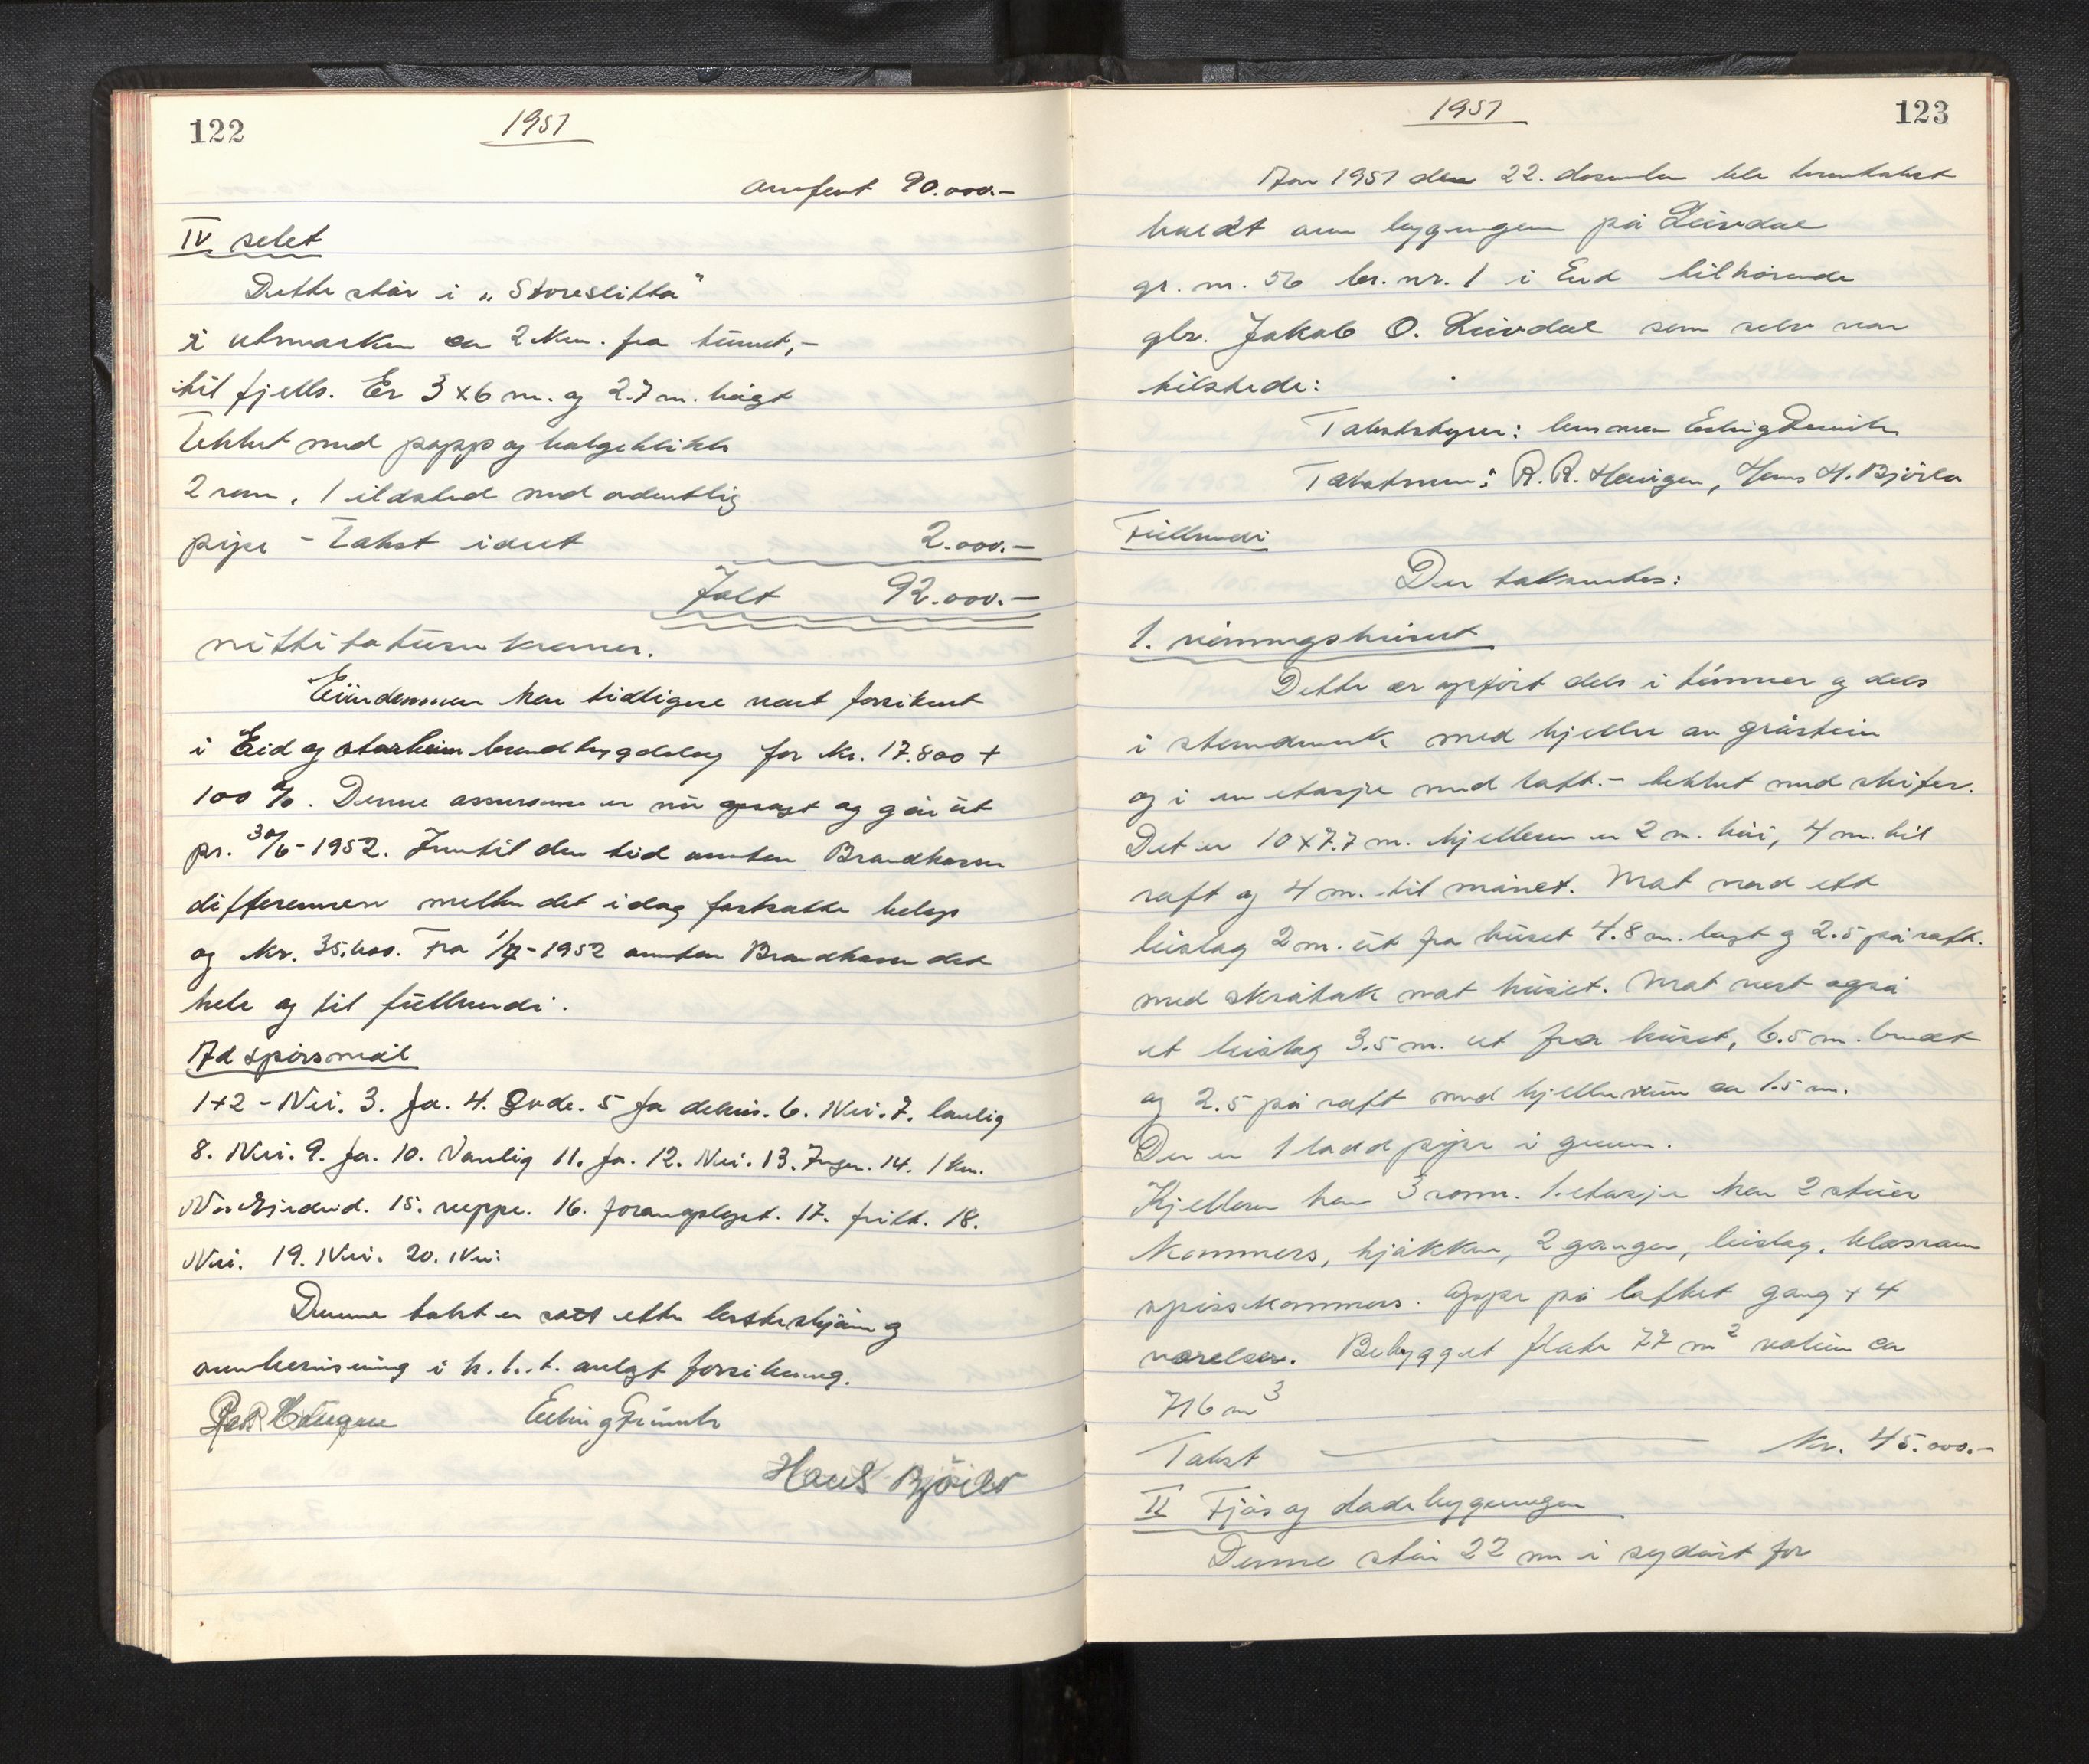 122
1951
overført 90.000.-
IV selet
Dette står i "Storeslitta"
i utmarken ca 2 km. fra tunet,-
til fjells. Er 3 x 6 m. og 2.7 m. høgt
Tekket med papp og bølgeblikk
2 rom, 1 ildsted med ordentlig
pipe - Takst idest 2.000.-
Ialt 92.000.-
nitti to tusen kroner.
Eiendommen har tidligere vært forsikret
i Eid og Starheim brandbygdelag for kr. 17.800 +
100 %. Denne assuranse er nu opsagt og går ut
pr. 30/6-1952. Inntil den tid overtar Brandkassen
differensen mellem det idag fastsatte beløp
og kr. 35.600. Fra 1/7-1952 overtar Brandkassen det
hele og til fullverdi.
Ad spørsmål
1+2 - Nei. 3. Ja. 4. Gode. 5 Ja delvis. 6. Nei. 7. lovlig
8. Nei. 9. Ja. 10. Vanlig 11. Ja. 12. Nei. 13. Ingen. 14. 1 km.
Nordfjordeid. 15. neppe. 16. forangslyst. 17. fritt. 18.
Nei. 19. Nei. 20. Nei:
Denne takst er satt etter beste skjønn og
overbevisning i h.h.t. avlagt forsikring.
R. R. Haugen Erling
Hans Bjørlo
1951
123
Aar 1951 den 22. desember ble branntakst
holdt over bygningen på Leivdal
gr. nr. 56 br. nr. 1 i Eid tilhørende
gbr. Jakob O. Leivdal som selv var
tilstede:
Takststyrer: lensmann Erling
Takstmenn: R. R. Haugen, Hans H. Bjørlo
Fullverdi
Der taksertes:
1. våningshuset
Dette er opført dels i tømmer og dels
i stenderverk med kjeller av gråstein
og i en etasje med loft.- tekket med skifer.
Det er 10 x 7.7 m. kjelleren er 2 m. høi, 4 m. til
raft og 4 m. til mønet. Mot nord ett
bislag 2 m. ut fra huset 4.8 m. langt og 2.5 på raft.
med skråtak mot huset. Mot vest også
et bislag 3.5 m. ut fra huset, 6.5 m. bredt
og 2.5 på raft med kjellerrum ca 1.5 m.
Der er 1 lodd pipe i grunn.
Kjelleren har 3 rom. 1. etasje har 2 stuer
kammers, kjøkken, 2 ganger, bislag, klesrom
spisskammers. Oppe på loftet gang + 4
værelser. Bebygget flate 77 m² volum ca
716 m³
Takst kr. 45.000.-
II Fjøs og ladebygningen
Denne står 22 m i sydøst for